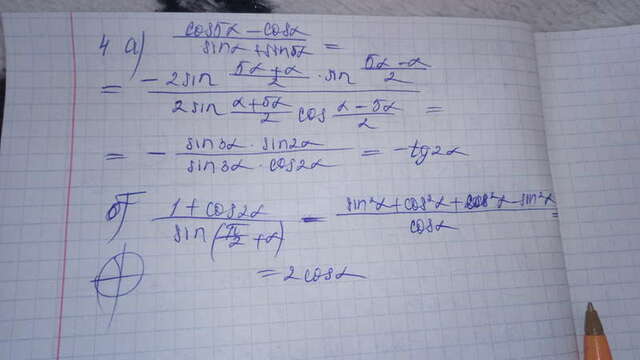 4 а) (cos5α - cosα)/(sinα + sin5α) =
= (-2sin (5α+α)/2 · sin (5α-α)/2)/(2sin (α+5α)/2 cos (α-5α)/2) =
= - (sin3α · sin2α)/(sin3α · cos2α) = -tg2α
б) (1 + cos2α)/(sin(π/2 + α)) = (sin²α + cos²α + cos²α - sin²α)/(cosα) =
= 2cosα